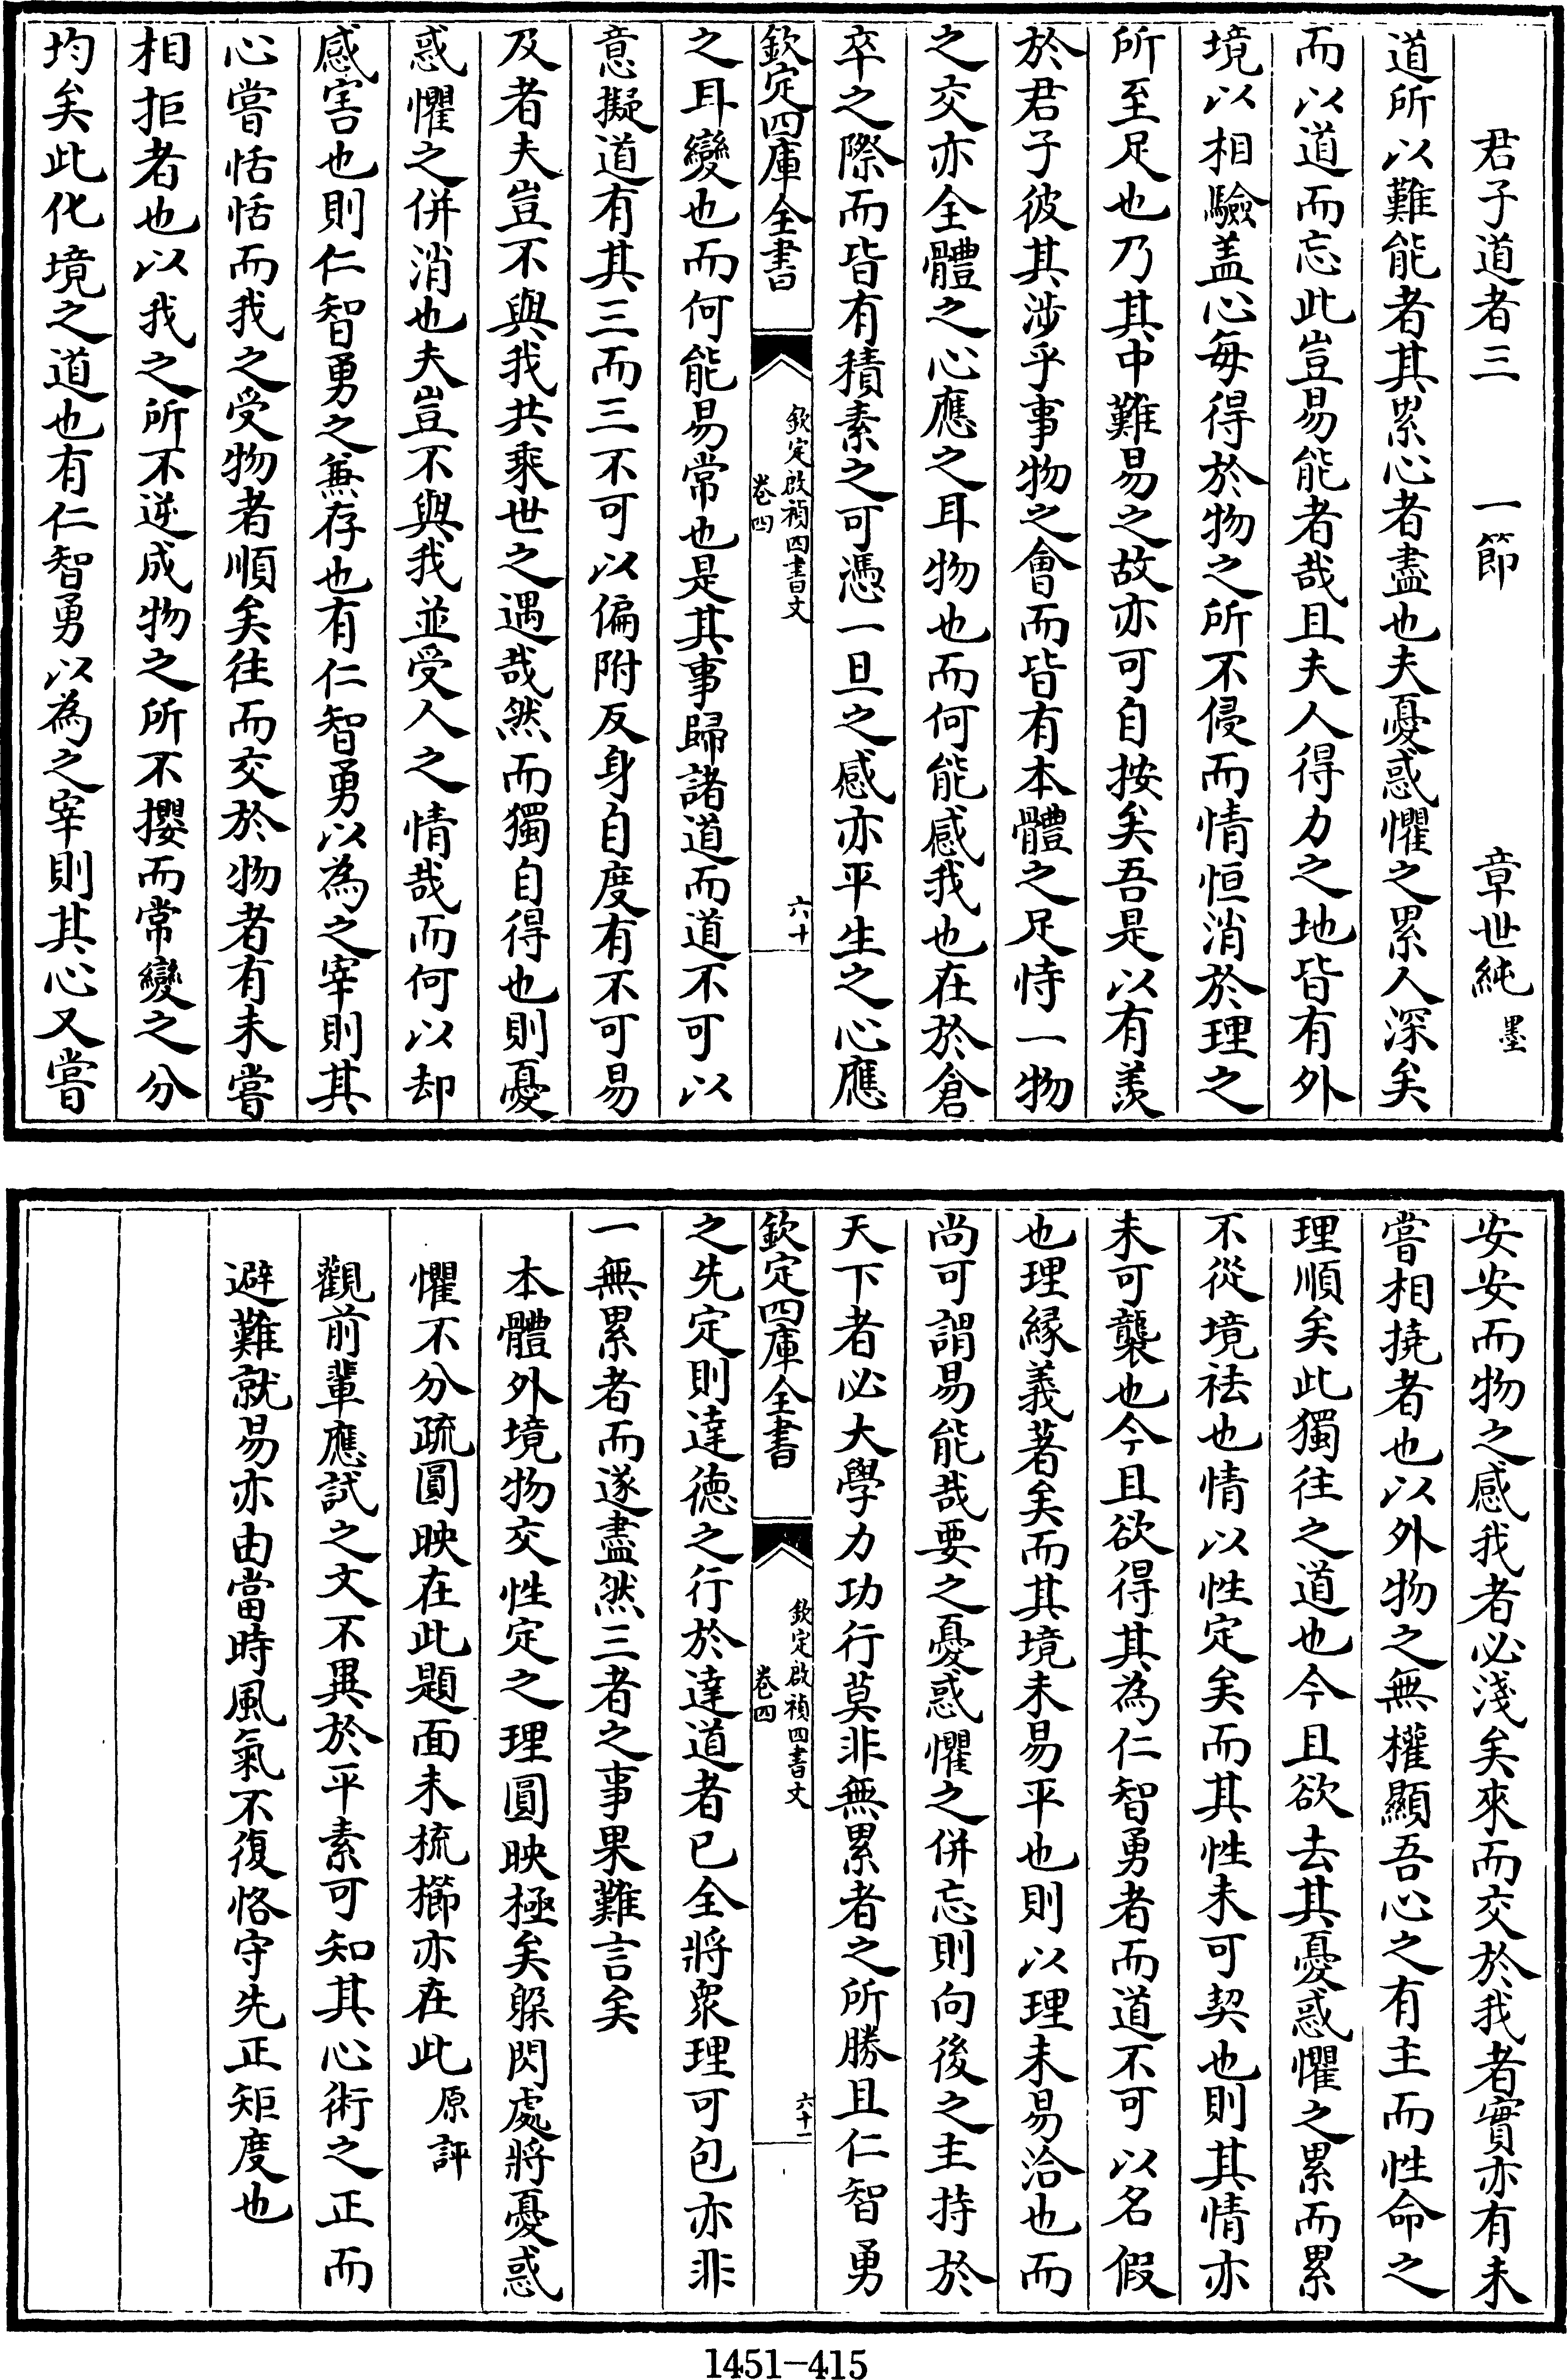 君子道者三　一節　章世純　墨
道所以難能者其累心者盡也夫憂惑懼之累人深矣
而以道而忘此豈易能者哉且夫人得力之地皆有外
境以相驗盖心每得於物之所不侵而情恒消於理之
所至足也乃其中難易之故亦可自按矣吾是以有羨
於君子彼其涉乎事物之會而皆有本體之足恃一物
之交亦全體之心應之耳物也而何能感我也在於倉
卒之際而皆有積素之可憑一旦之感亦平生之心應
欽定四庫全書
欽定啟禎四書文
卷四
六十
之耳變也而何能易常也是其事歸諸道而道不可以
意擬道有其三而三不可以偏附反身自度有不可易
及者夫豈不與我共乘世之遇哉然而獨自得也則憂
惑懼之併消也夫豈不與我並受人之情哉而何以却
感害也則仁智勇之兼存也有仁智勇以為之宰則其
心嘗恬恬而我之受物者順矣往而交於物者有未嘗
相拒者也以我之所不逆成物之所不攖而常變之分
均矣此化境之道也有仁智勇以為之宰則其心又嘗
安安而物之感我者必淺矣來而交於我者實亦有未
嘗相撓者也以外物之無權顯吾心之有主而性命之
理順矣此獨往之道也今且欲去其憂惑懼之累而累
不從境祛也情以性定矣而其性未可契也則其情亦
未可襲也今且欲得其為仁智勇者而道不可以名假
也理緣義著矣而其境未易平也則以理未易洽也而
尚可謂易能哉要之憂惑懼之併忘則向後之主持於
天下者必大學力功行莫非無累者之所勝且仁智勇
欽定四庫全書
欽定啟禎四書文
卷四
六十一
之先定則達德之行於達道者已全將衆理可包亦非
一無累者而遂盡然三者之事果難言矣
本體外境物交性定之理圓映極矣躲閃處將憂惑
懼不分疏圓映在此題面未梳櫛亦在此　原評
觀前輩應試之文不異於平素可知其心術之正而
避難就易亦由當時風氣不復恪守先正矩度也
1451-415